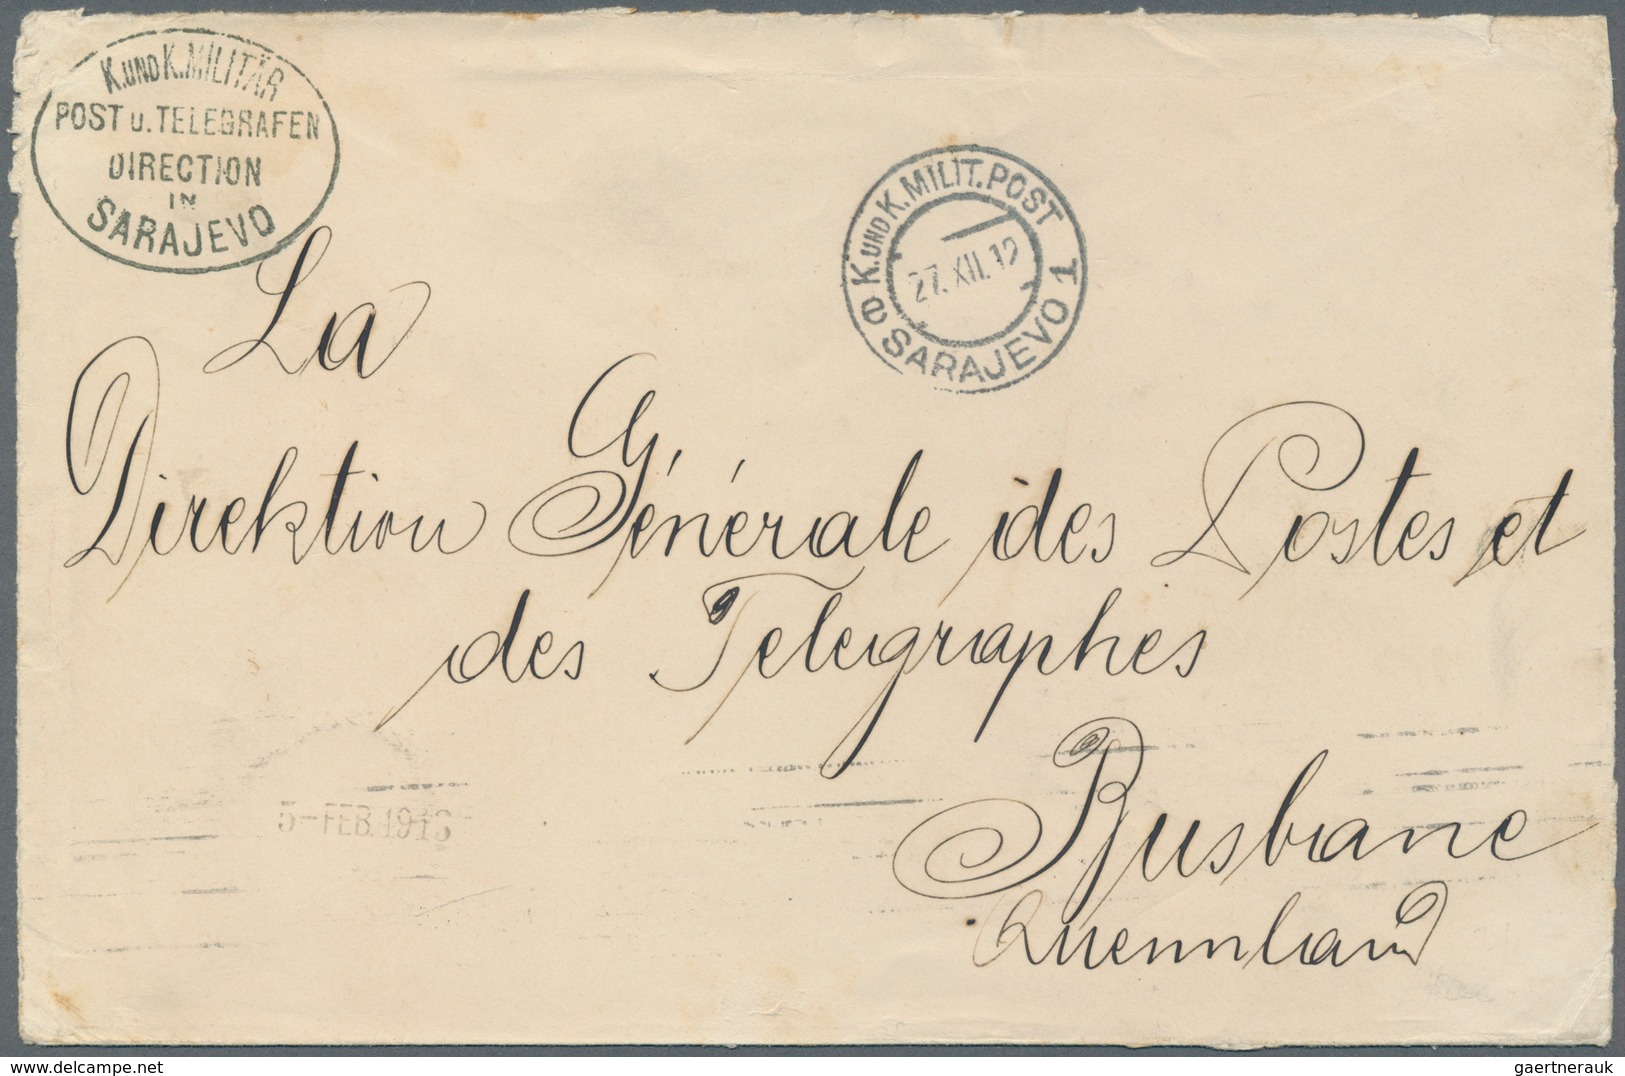 K. UND K. MILITÄR
POST U. TELEGRAFEN
DIRECTION
IN
SARAJEVO
K. UND K. MILIT. POST
27. XII. 12
SARAJEVO 1
La
Direktion Générale des Postes et
des Telegraphes
Busbane
Quennland
5-FEB.1913
gaertnerauk